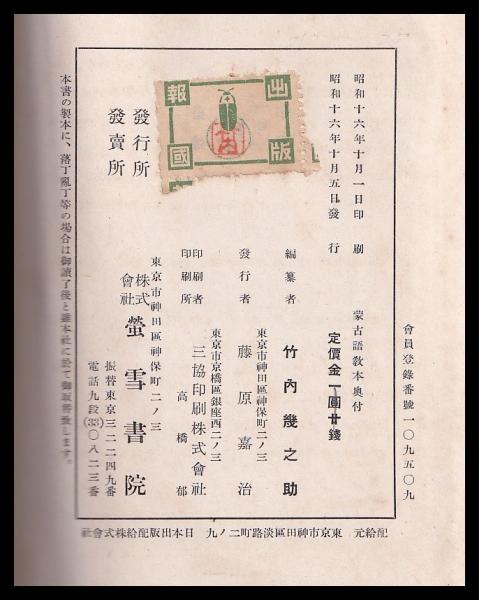 會員登錄番號一〇九五〇九
昭和十六年十月一日印刷
昭和十六年十月五日發行
蒙古語教本奥付
定價金一圓廿錢
編纂者 竹內幾之助
東京市神田區神保町二ノ三
發行者 藤原嘉治
東京市京橋區銀座西二ノ三
印刷者 高橋郁
印刷所 三協印刷株式會社
發行所
發賣所
東京市神田區神保町二ノ三
株式會社 螢雪書院
振替東京三二二四九番
電話九段(33)〇八二三番
出版
報國
本書の製本に、落丁亂丁等の場合は御讀了後と雖本社に於て御取替致します。
配給元 東京市神田區淡路町二ノ九 日本出版配給株式會社